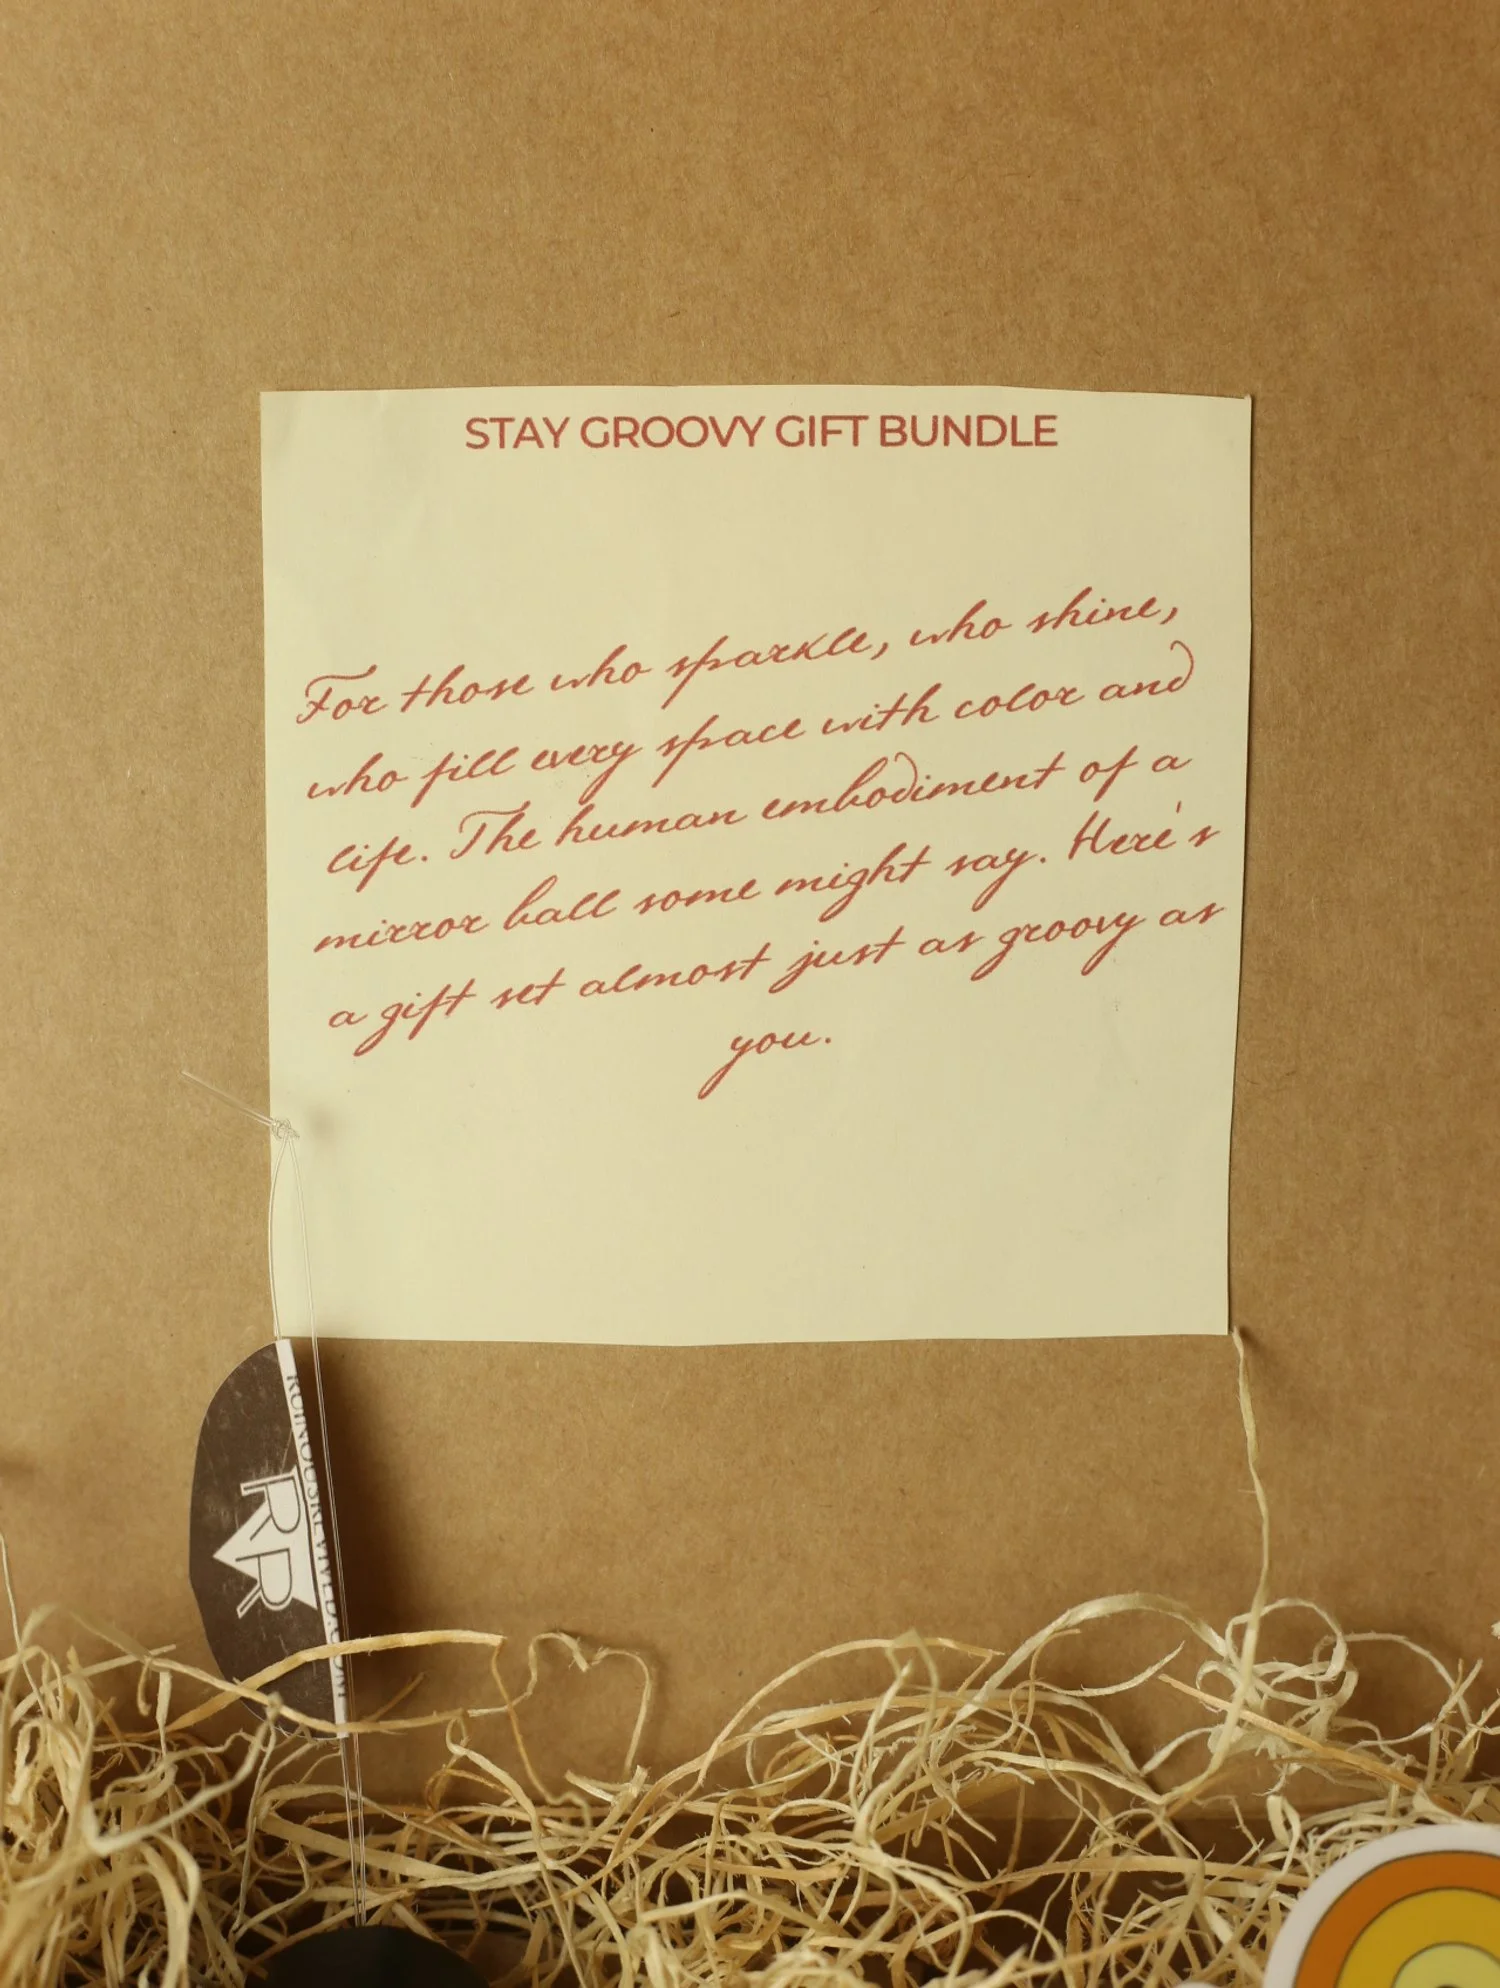 STAY GROOVY GIFT BUNDLE
For those who sparkle, who shine,
who fill every space with color and
life. The human embodiment of a
mirror ball some might say. Here's
a gift set almost just as groovy as
you.
RUINOUSREVIVED.COM
RR